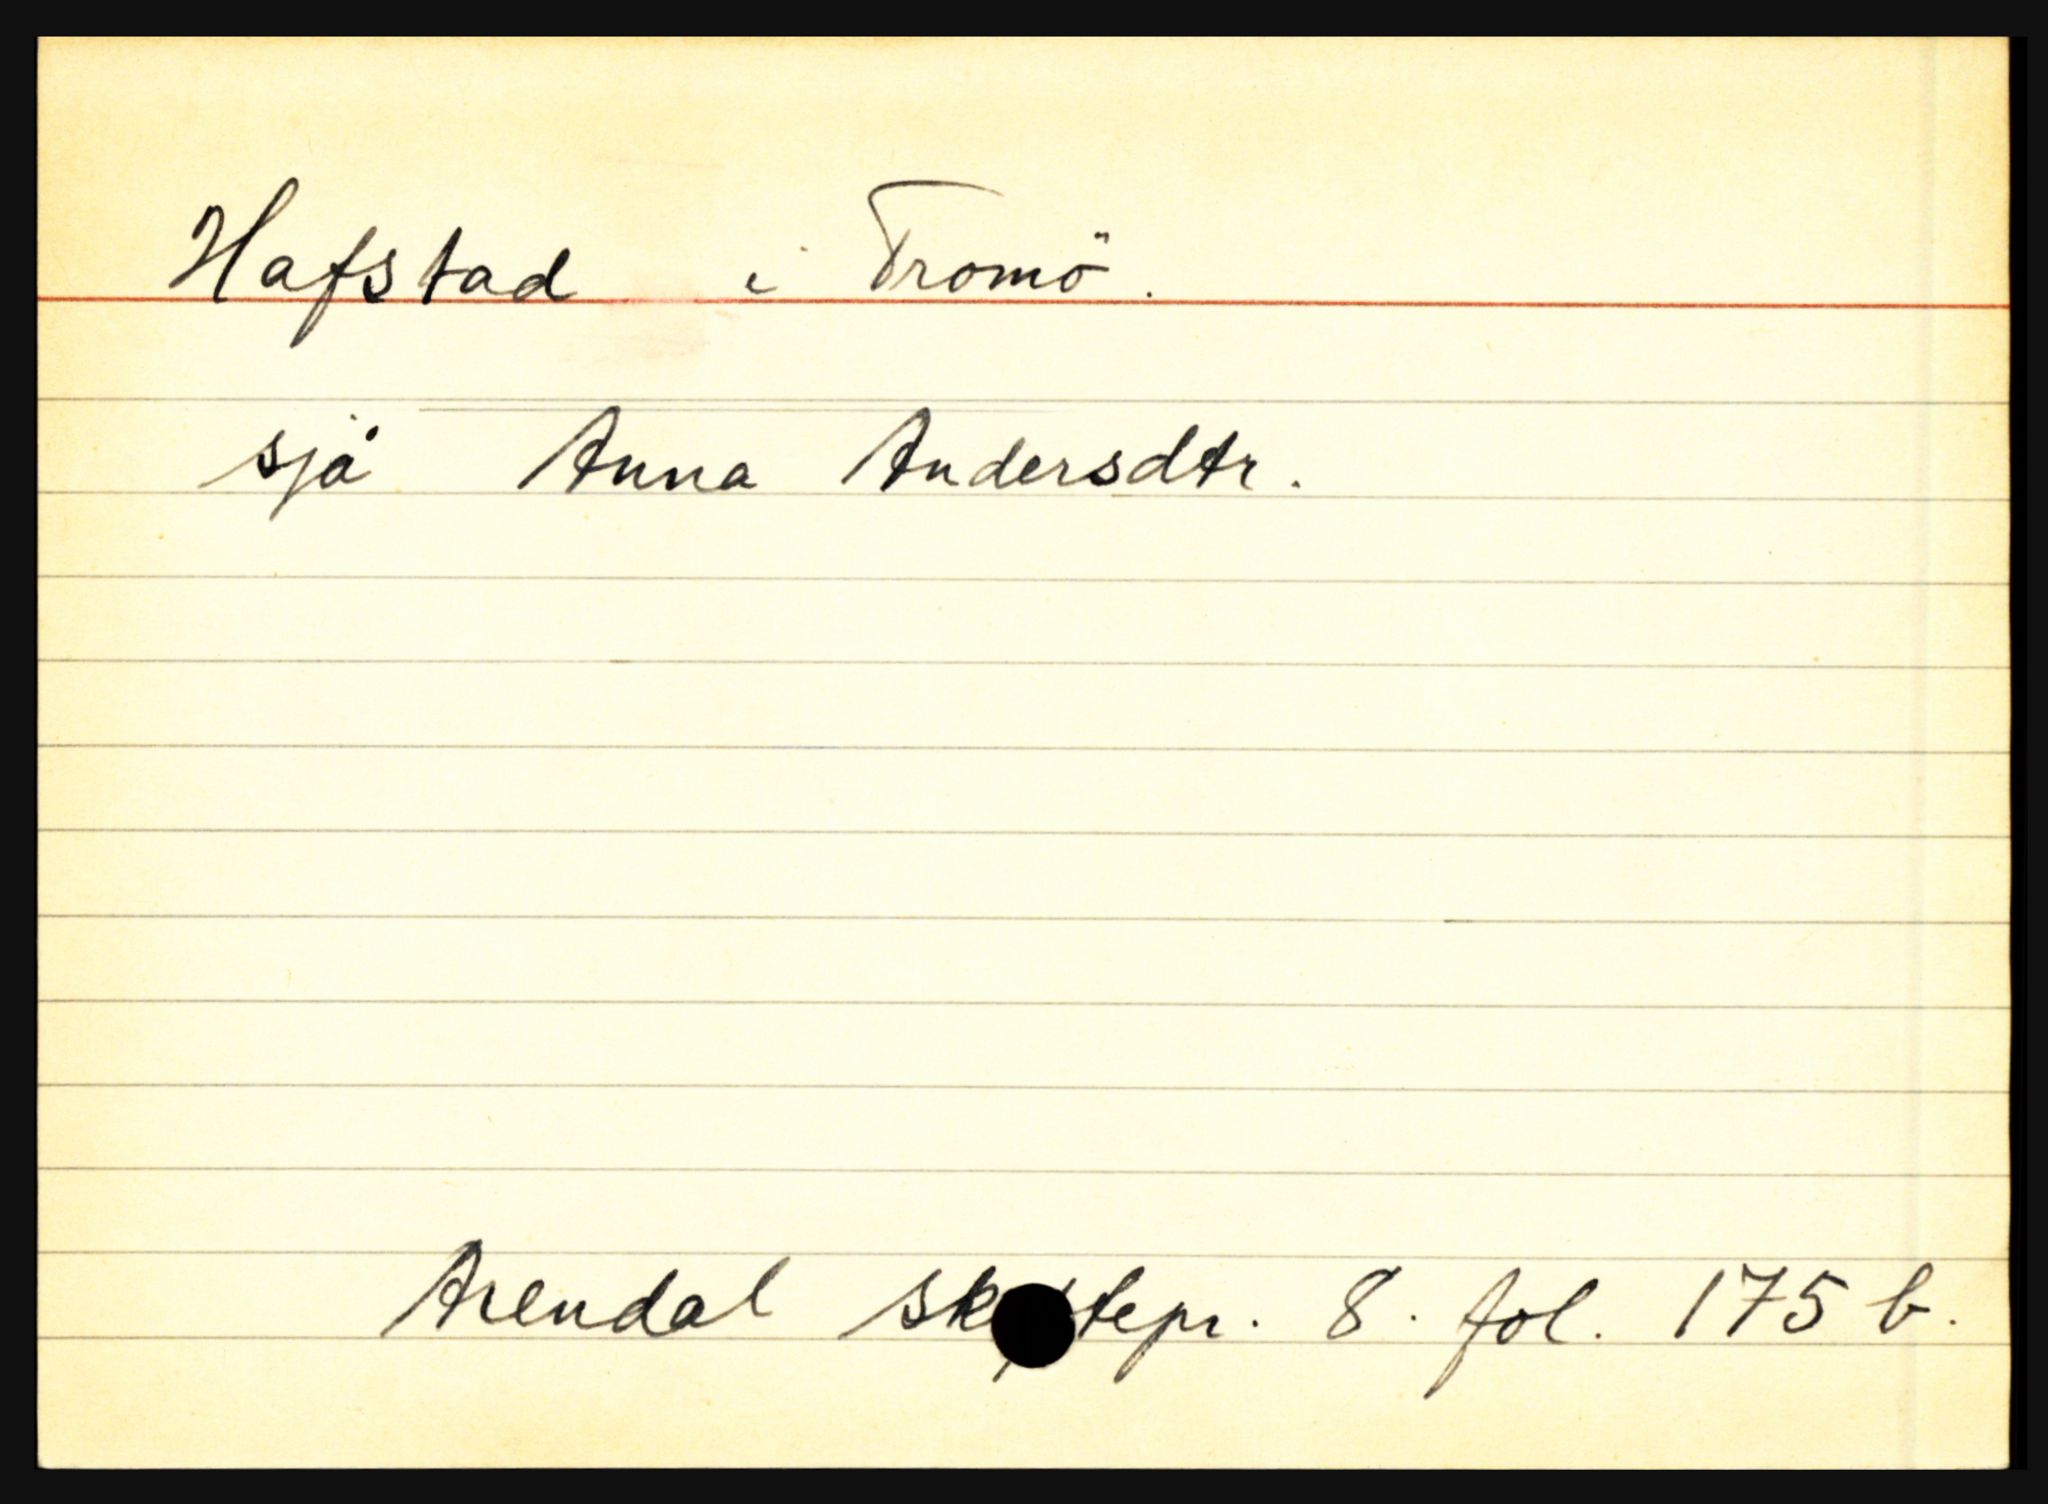 Hafstad i Tromö.
sjå Anna Andersdtr.
Arendal skiftepr. 8. fol. 175 b.